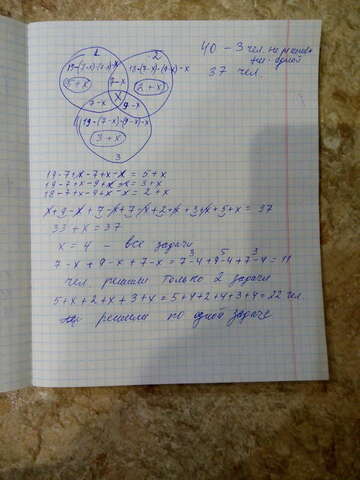 1
2
40 - 3 чел. не решили
ни одной
37 чел.
19-(7-x)-(7-x)-x
18-(7-x)-(9-x)-x
5+x
7-x
2+x
x
7-x
9-x
19-(7-x)-(9-x)-x
3+x
3
19-7+x-7+x-x = 5+x
19-7+x-9+x-x = 3+x
18-7+x-9+x-x = 2+x
x+9-x+7-x+7-x+2+x+3+x+5+x = 37
33+x = 37
x = 4 - все задачи
3 5 3
7-x+9-x+7-x = 7-4+9-4+7-4 = 11
чел. решили только 2 задачи
5+x+2+x+3+x = 5+4+2+4+3+4 = 22 чел.
решили по одной задаче